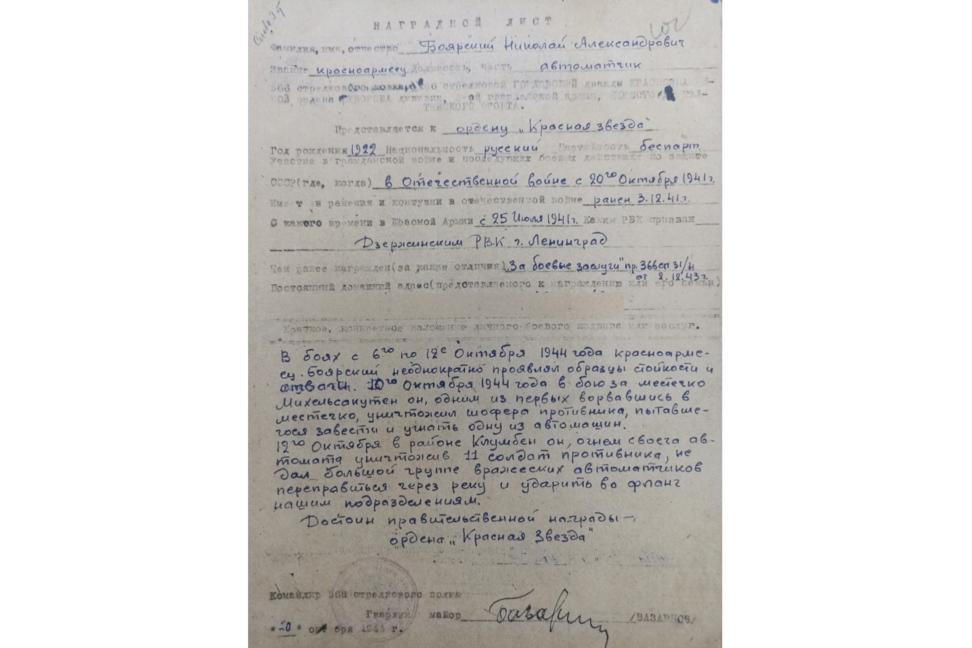 НАГРАДНОЙ ЛИСТ
Фамилия, имя, отчество Боярский Николай Александрович
Звание красноармеец Должность, часть автоматчик
Представляется к ордену „Красная звезда"
Год рождения 1922 Национальность русский Партийность беспарт.
Участие в гражданской войне и последующих боевых действиях по защите
СССР (где, когда) в Отечественной войне с 20го Октября 1941г.
ранения и контузии в отечественной войне ранен 3.12.41г.
С какого времени в Красной Армии с 25 Июля 1941г. Каким РВК призван
Дзержинским РВК г. Ленинград
Чем ранее награжден (за какие отличия) „За боевые заслуги" пр. 366сп 31/н
от 2.12.43г.
Постоянный домашний адрес (представляемого к награждению или его семьи)
Краткое, конкретное изложение личного боевого подвига или заслуг.
В боях с 6го по 12е Октября 1944 года красноарме-
ец Боярский неоднократно проявлял образцы стойкости и
отваги. 10го Октября 1944 года в бою за местечко
Михельсакутен он, одним из первых ворвавшись в
местечко, уничтожил шофера противника, пытавше-
гося завести и угнать одну из автомашин.
12го Октября в районе Клумбен он, огнем своего ав-
томата уничтожив 11 солдат противника, не
дал большой группе вражеских автоматчиков
переправиться через реку и ударить во фланг
нашим подразделениям.
Достоин правительственной награды –
ордена „Красная Звезда"
Командир 366 стрелкового полка
Гвардии майор /БАЗАРНОВ/
"20" октября 1944 г.